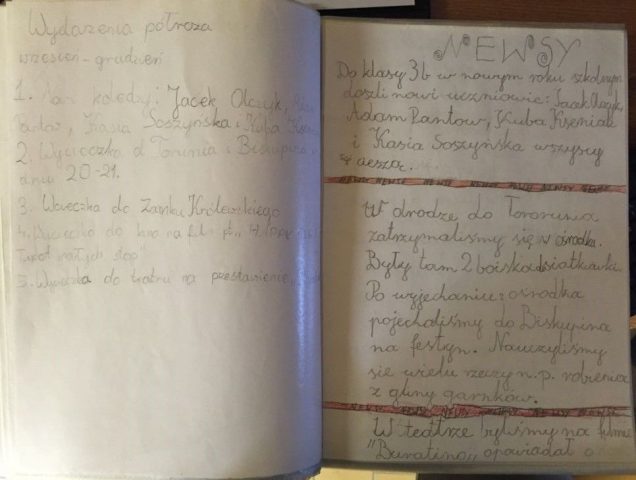 Wydarzenia półrocza
wrzesień-grudzień
1. Nowi koledzy: Jacek Olczyk,
Pantow, Kasia Soszyńska i Kuba
2. Wycieczka d Torunia i Biskupina
dniu 20-21.
3. Wycieczka do Zamku Królewskiego
4. do kina na film pt.
Tupot małych stóp"
5. Wycieczka do teatru na przestawienie
NEWSY
Do klasy 3b w nowym roku szkolnym
doszli nowi uczniowie: Jacek Olczyk,
Adam Pantow, Kuba Kseniak
i Kasia Soszyńska wszyscy
się cieszą.
NEWSY NEWSY NEWSY NEWSY NEWSY NEWSY NEWSY
W drodze do Torunia
zatrzymaliśmy się w ośrodku.
Były tam 2 boiska do siatkówki.
Po wyjechaniu z ośrodka
pojechaliśmy do Biskupina
na festyn. Nauczyliśmy
się wielu rzeczy n.p. robienia
z gliny garnków.
NEWSY NEWSY NEWSY NEWSY NEWSY NEWSY
W teatrze byliśmy na filmie
"Buratino,, opowiadał o